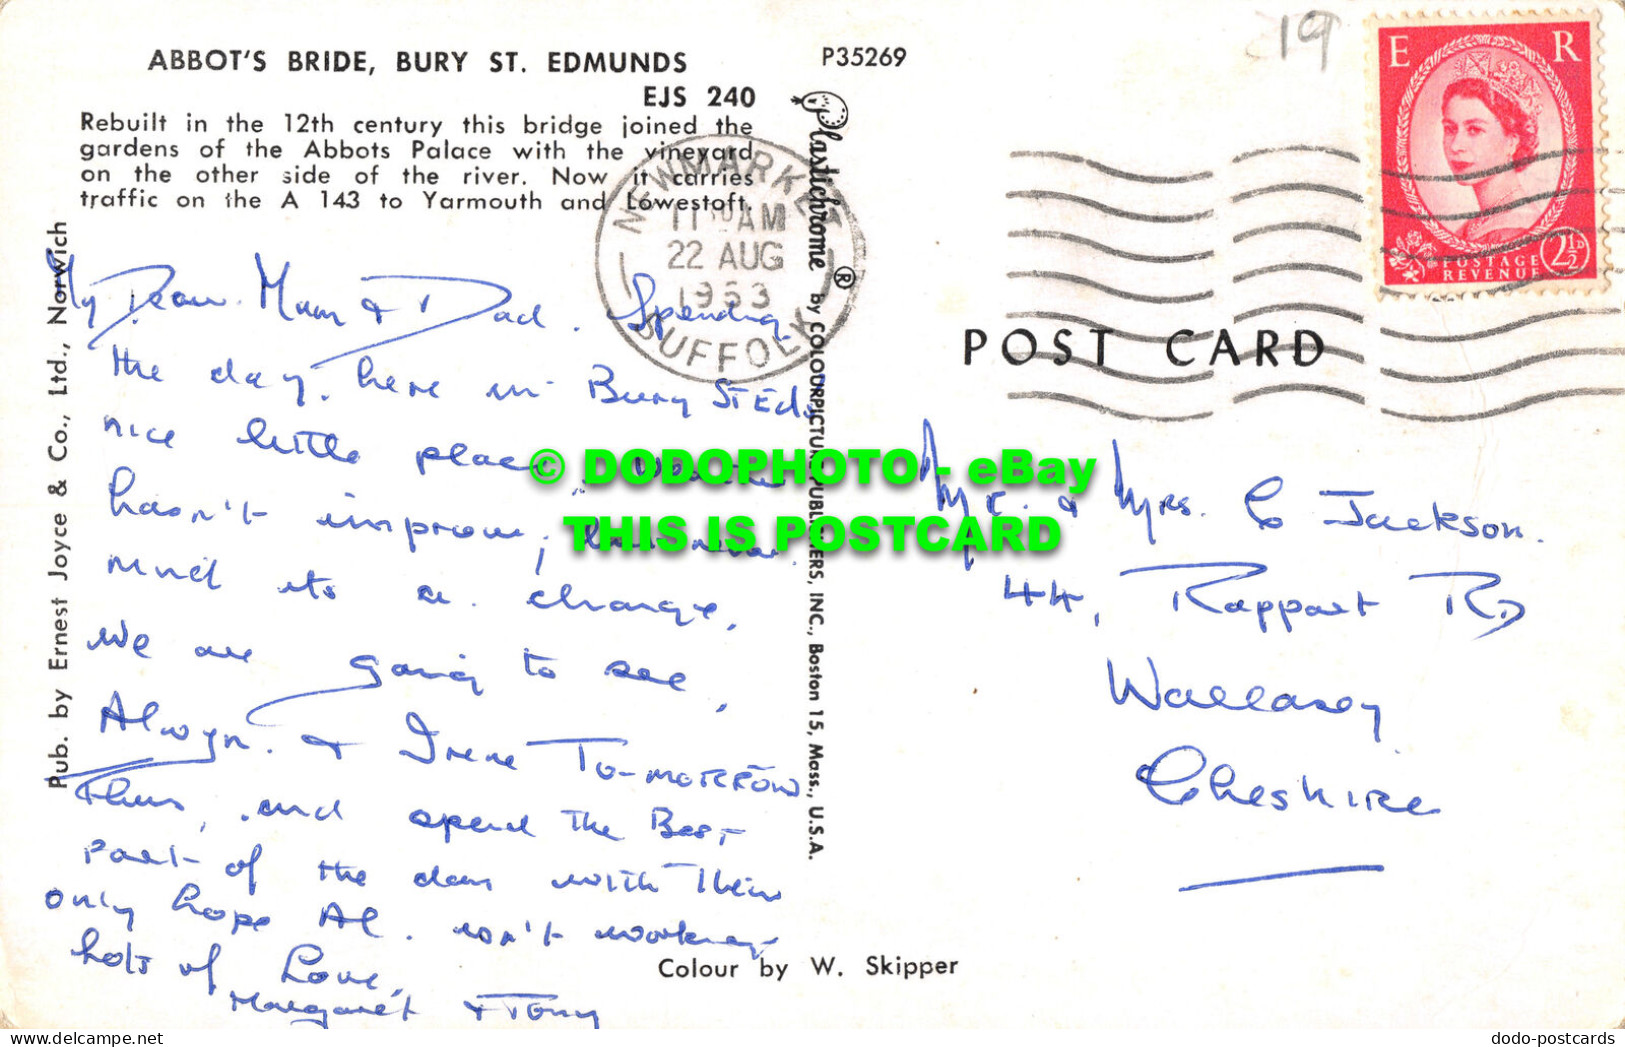 ABBOT'S BRIDE, BURY ST. EDMUNDS
EJS 240
Rebuilt in the 12th century this bridge joined the
gardens of the Abbots Palace with the vineyard
on the other side of the river. Now it carries
traffic on the A 143 to Yarmouth and Lowestoft.
P35269
19
E R
POSTAGE
REVENUE
2½D
NEWMARKET
11 AM
22 AUG
1963
SUFFOLK
Plastichrome ® by COLOURPICTURE PUBLISHERS, INC., Boston 15, Mass., U.S.A.
Pub. by Ernest Joyce & Co., Ltd., Norwich
POST CARD
My Dear Mum & Dad. Spending
the day, here in Bury St Eds
nice little place
hasn't improve;
mind its a change,
We are going to see,
Alwyn. & Irene To-morrow
Thurs, and spend the Best
part of the day with Them
only hope Al. isn't working
Lots of Love,
Margaret & Tony
© DODOPHOTO - eBay
THIS IS POSTCARD
Mr. & Mrs. C Jackson.
44, Rappart RD
Wallasey
Cheshire
Colour by W. Skipper
delcampe.net
dodo-postcards